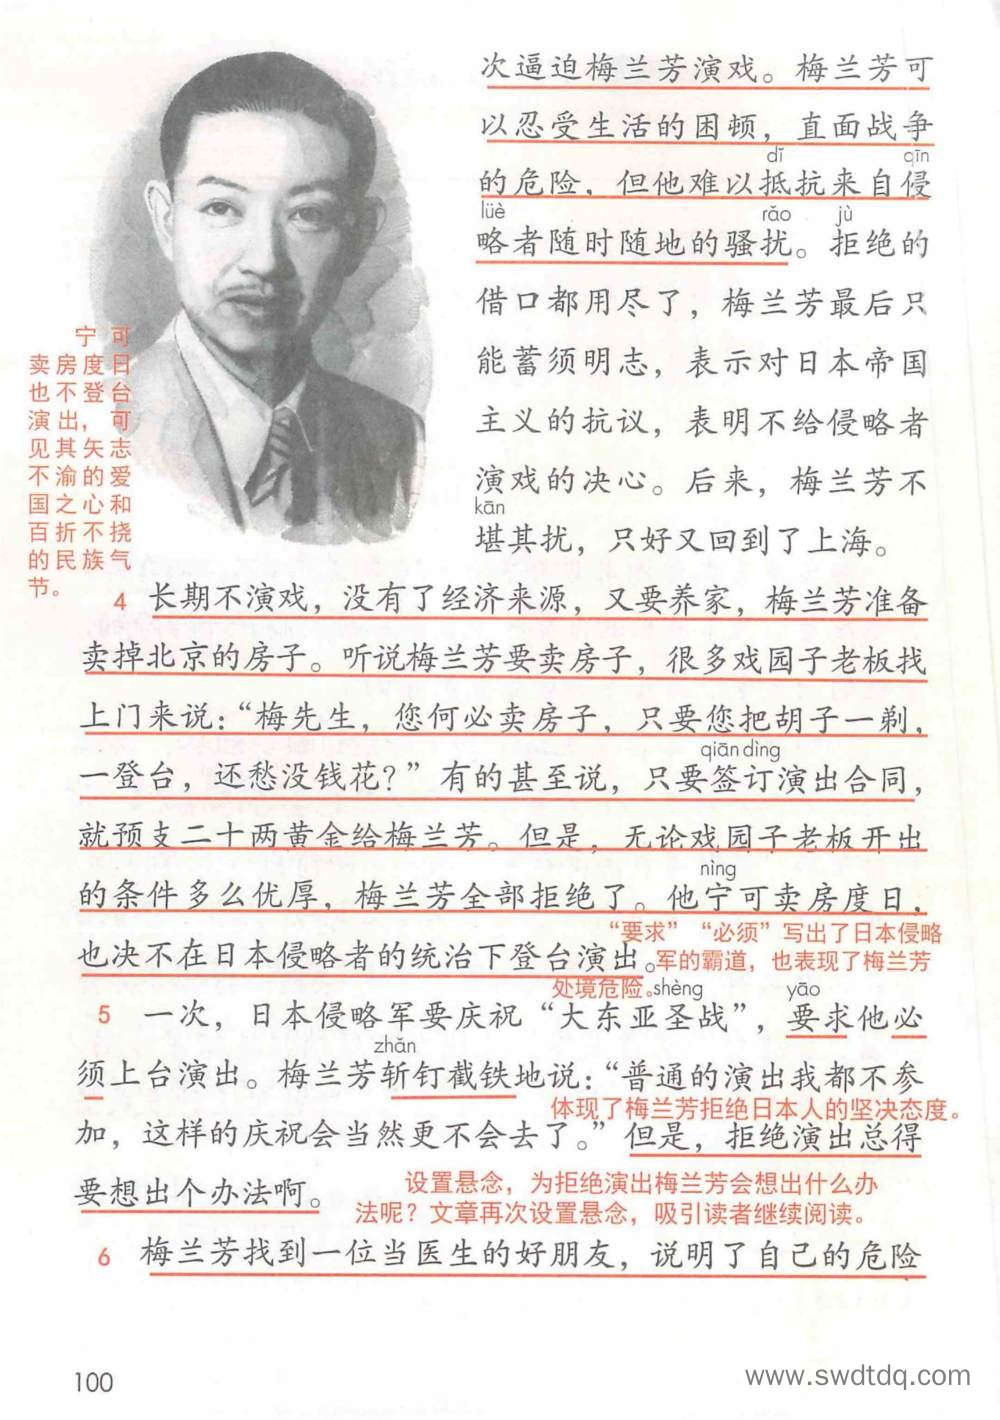 次逼迫梅兰芳演戏。梅兰芳可
以忍受生活的困顿，直面战争
dǐ qīn
的危险，但他难以抵抗来自侵
lüè rǎo jù
略者随时随地的骚扰。拒绝的
借口都用尽了，梅兰芳最后只
能蓄须明志，表示对日本帝国
主义的抗议，表明不给侵略者
演戏的决心。后来，梅兰芳不
kān
堪其扰，只好又回到了上海。
宁可
卖房度日
也不登台
演出，可
见其矢志
不渝的爱
国之心和
百折不挠
的民族气
节。
4 长期不演戏，没有了经济来源，又要养家，梅兰芳准备
卖掉北京的房子。听说梅兰芳要卖房子，很多戏园子老板找
上门来说：“梅先生，您何必卖房子，只要您把胡子一剃，
qiān dìng
一登台，还愁没钱花？”有的甚至说，只要签订演出合同，
就预支二十两黄金给梅兰芳。但是，无论戏园子老板开出
nìng
的条件多么优厚，梅兰芳全部拒绝了。他宁可卖房度日，
也决不在日本侵略者的统治下登台演出。
“要求”“必须”写出了日本侵略
军的霸道，也表现了梅兰芳
处境危险。
shèng yāo
5 一次，日本侵略军要庆祝“大东亚圣战”，要求他必
zhǎn
须上台演出。梅兰芳斩钉截铁地说：“普通的演出我都不参
体现了梅兰芳拒绝日本人的坚决态度。
加，这样的庆祝会当然更不会去了。”但是，拒绝演出总得
要想出个办法啊。
设置悬念，为拒绝演出梅兰芳会想出什么办
法呢？文章再次设置悬念，吸引读者继续阅读。
6 梅兰芳找到一位当医生的好朋友，说明了自己的危险
100
www.swdtdq.com